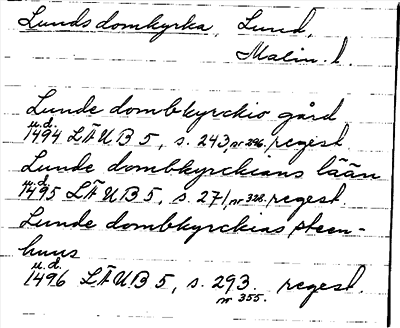 Lunds domkyrka, Lund,
Malm. l.
Lunde dombkyrckio gård
u.d.
1494 LÄUB 5, s. 243, nr 296. regest.
Lunde dombkyrckians lään
u.d.
1495 LÄUB 5, s. 271, nr 328. regest.
Lunde dombkyrckias steen-
huus
u.d.
1496 LÄUB 5, s. 293. regest.
nr 355.